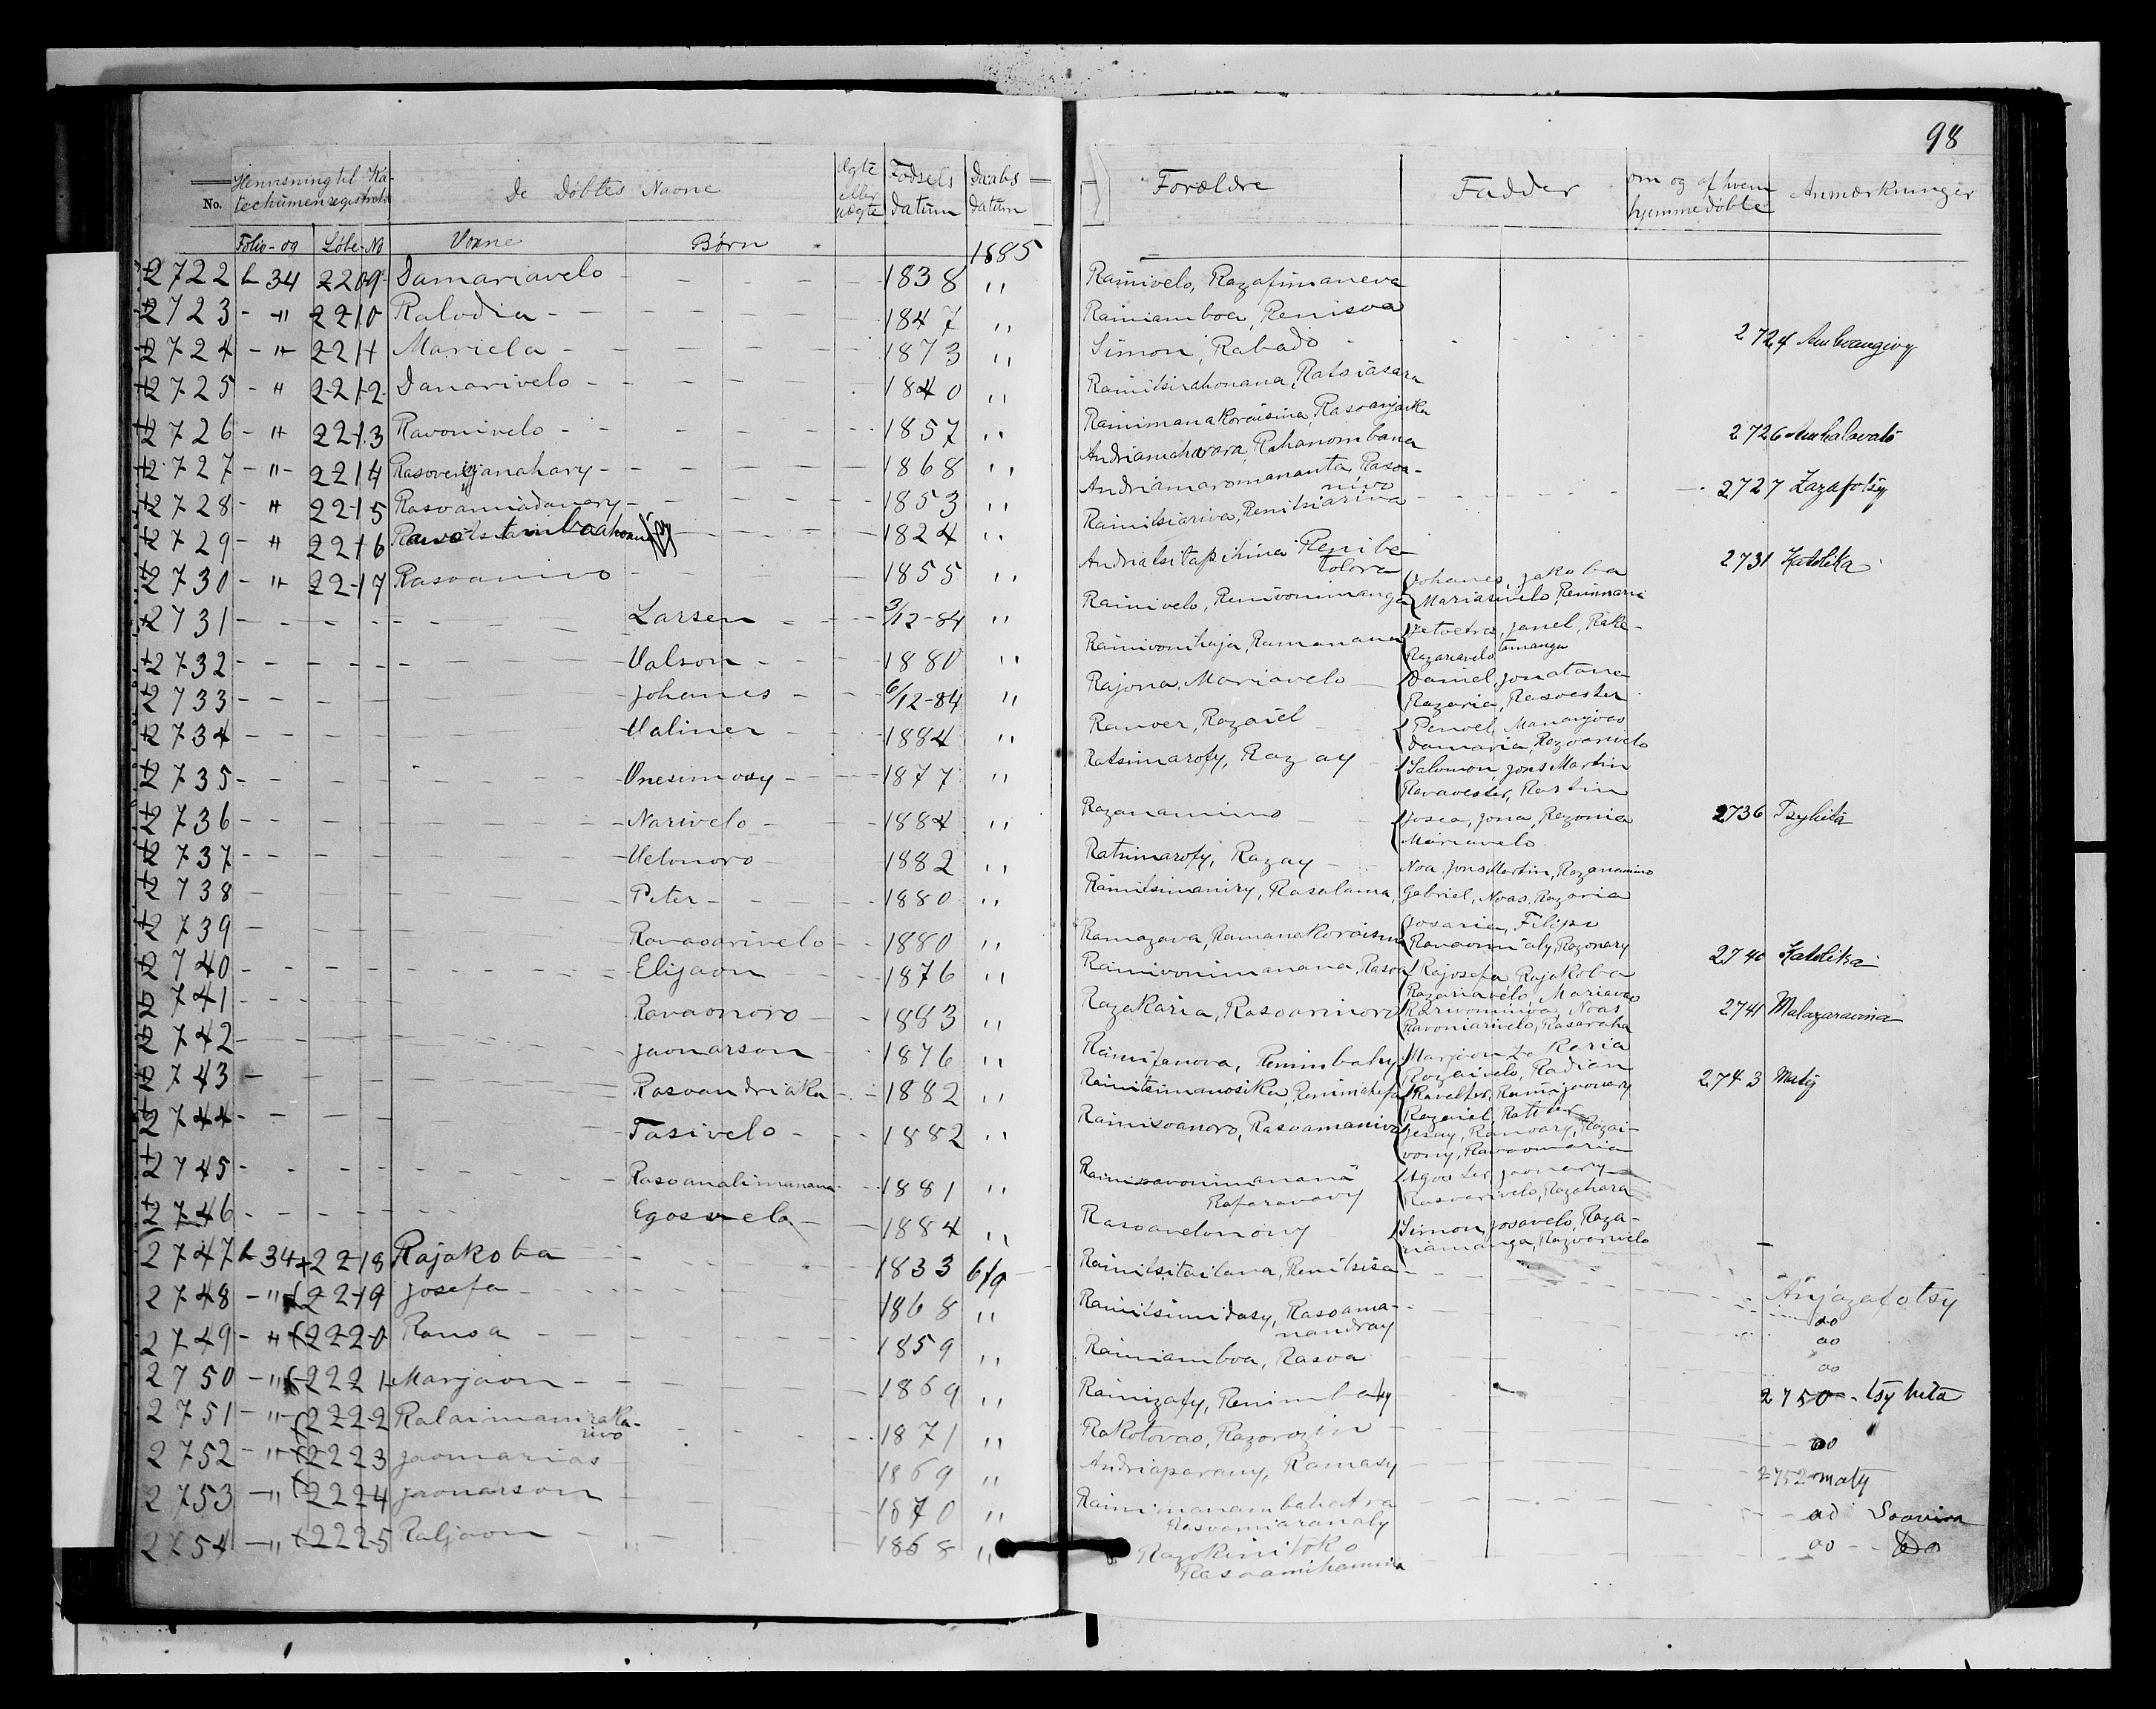 98
No. Henvisning til Katechumenregistret De Døbtes Navne Ægte eller uægte Fødsels datum Daabs datum Forældre Fadder om og af hvem hjemmedøbte Anmærkninger
Folio- og Løbe-No Voxne Børn 1885
2722 h 34 2209 Damariavelo 1838 " Rainivelo, Razafimaneva
2723 - " 2210 Ralodia 1847 " Rainiamboa, Renisoa
2724 - " 2211 Mariela 1873 " Simon, Rabado 2724 Ambvangivy
2725 - " 2212 Danarivelo 1840 " Rainitsirahonana, Ratsiasara
2726 - " 2213 Ravonivelo 1857 " Rainimanakoraisina, Rasoanjaka 2726 Ambalavato
2727 - " 2214 1868 " Andriamiharara, Rahanombana 2727 Zazafotsy
2728 - " 2215 Rasoamiadanary 1853 " Andriamaromananta, Rasoa-
nivo
2729 - " 2216 1824 " Rainitsiariva, Renitsiariva
2730 - " 2217 Rasoanivo 1855 " Andriatsitapihina Renibe-
tolora
2731 Larsen 3/12-84 " Rainivelo, Renivonimanga Johanes, Jakoba 2731 Katolika
Mariasivelo, Reninaria
2732 Valson 1880 " Rainivonihaja, Ramanana Zetoetra, Janel, Rake-
Razariavelo tamanga
2733 Johanes 6/12-84 " Rajona, Mariavelo Daniel, Jonatana
Razaria, Rasoester
2734 Valiner 1884 " Ranoer, Razaiel Penoel, Mananjoas
Damaria, Razoarivelo
2735 Onesimosy 1877 " Ratsimarofy, Razay Salomon, Jons Martin
Ravavester, Rastin
2736 Narivelo 1884 " Razanamino Josea, Jona, Razonia 2736 Tsyhita
Mariavelo
2737 Velonoro 1882 " Ratsimarofy, Razay Noa, Jons Martin, Razanamino
2738 Peter 1880 " Rainitsimaniry, Rasalama, Gabriel, Noas, Razaria
2739 Ravaoarivelo 1880 " Ramazava, Ramanakoraisina Josaria, Filipo
Ravaomialy, Razonary
2740 Elijaon 1876 " Rainivonimanana, Rasoa Rajosefa, Rajakoba 2740 Katolika
Razariavelo, Mariavao
2741 Ravaonoro 1883 " Razakaria, Rasoarinoro Rarivominoa, Noas 2741 Malazarasoina
Ravoniarivelo, Rasaraha
2742 Jaonarson 1876 " Rainifanova, Renimbahy Marjaon Za Karia
Rozaivelo, Radian
2743 Rasoandriaka 1882 " Rainitsimanosika, Renimahefa Ravelter, Rainijaonary 2743 Maty
Razaiel, Ratever
2744 Tasivelo 1882 " Rainisoanoro, Rasoamaniva Jesay, Ranoary, Razai-
vony, Ravaomaria
2745 Rasoanalimanana 1881 " Rainisavonimanana Agoster, Jaonary
Rafaravavy Rasoarivelo, Razahara
2746 Egosvela 1884 " Rasoavelonony Simon, Josavelo, Raza-
riamanga, Razoarivelo
2747 h 34 2218 Rajakoba 1833 6/9 Rainitsitailana, Renitsisa
2748 - " 2219 Josefa 1868 " Rainitsimidasy, Rasoama- Anjazafotsy
nandray do
2749 - " 2220 Ranoa 1859 " Rainiamboa, Rasoa do
2750 - " 2221 Marjaon 1869 " Rainizafy, Renimbahy 2750 - tsy hita
2751 - " 2222 Ralaimaniraka-
rivo 1871 " Rakotovao, Razorozin do
2752 - " 2223 Jaomarias 1869 " Andriaparany, Ramasy 2752 maty
2753 - " 2224 Jaonarson 1870 " Rainimanambahatra do Soavina
Rasoamiaranaly
2754 - " 2225 Raljaon 1868 " Razokinitoko do - - Do
Rasoamihamina